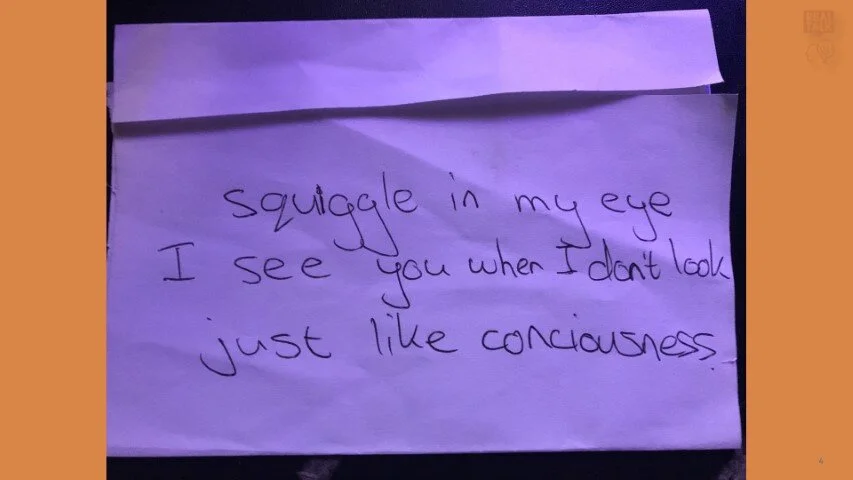 squiggle in my eye
I see you when I don't look
just like conciousness.
4